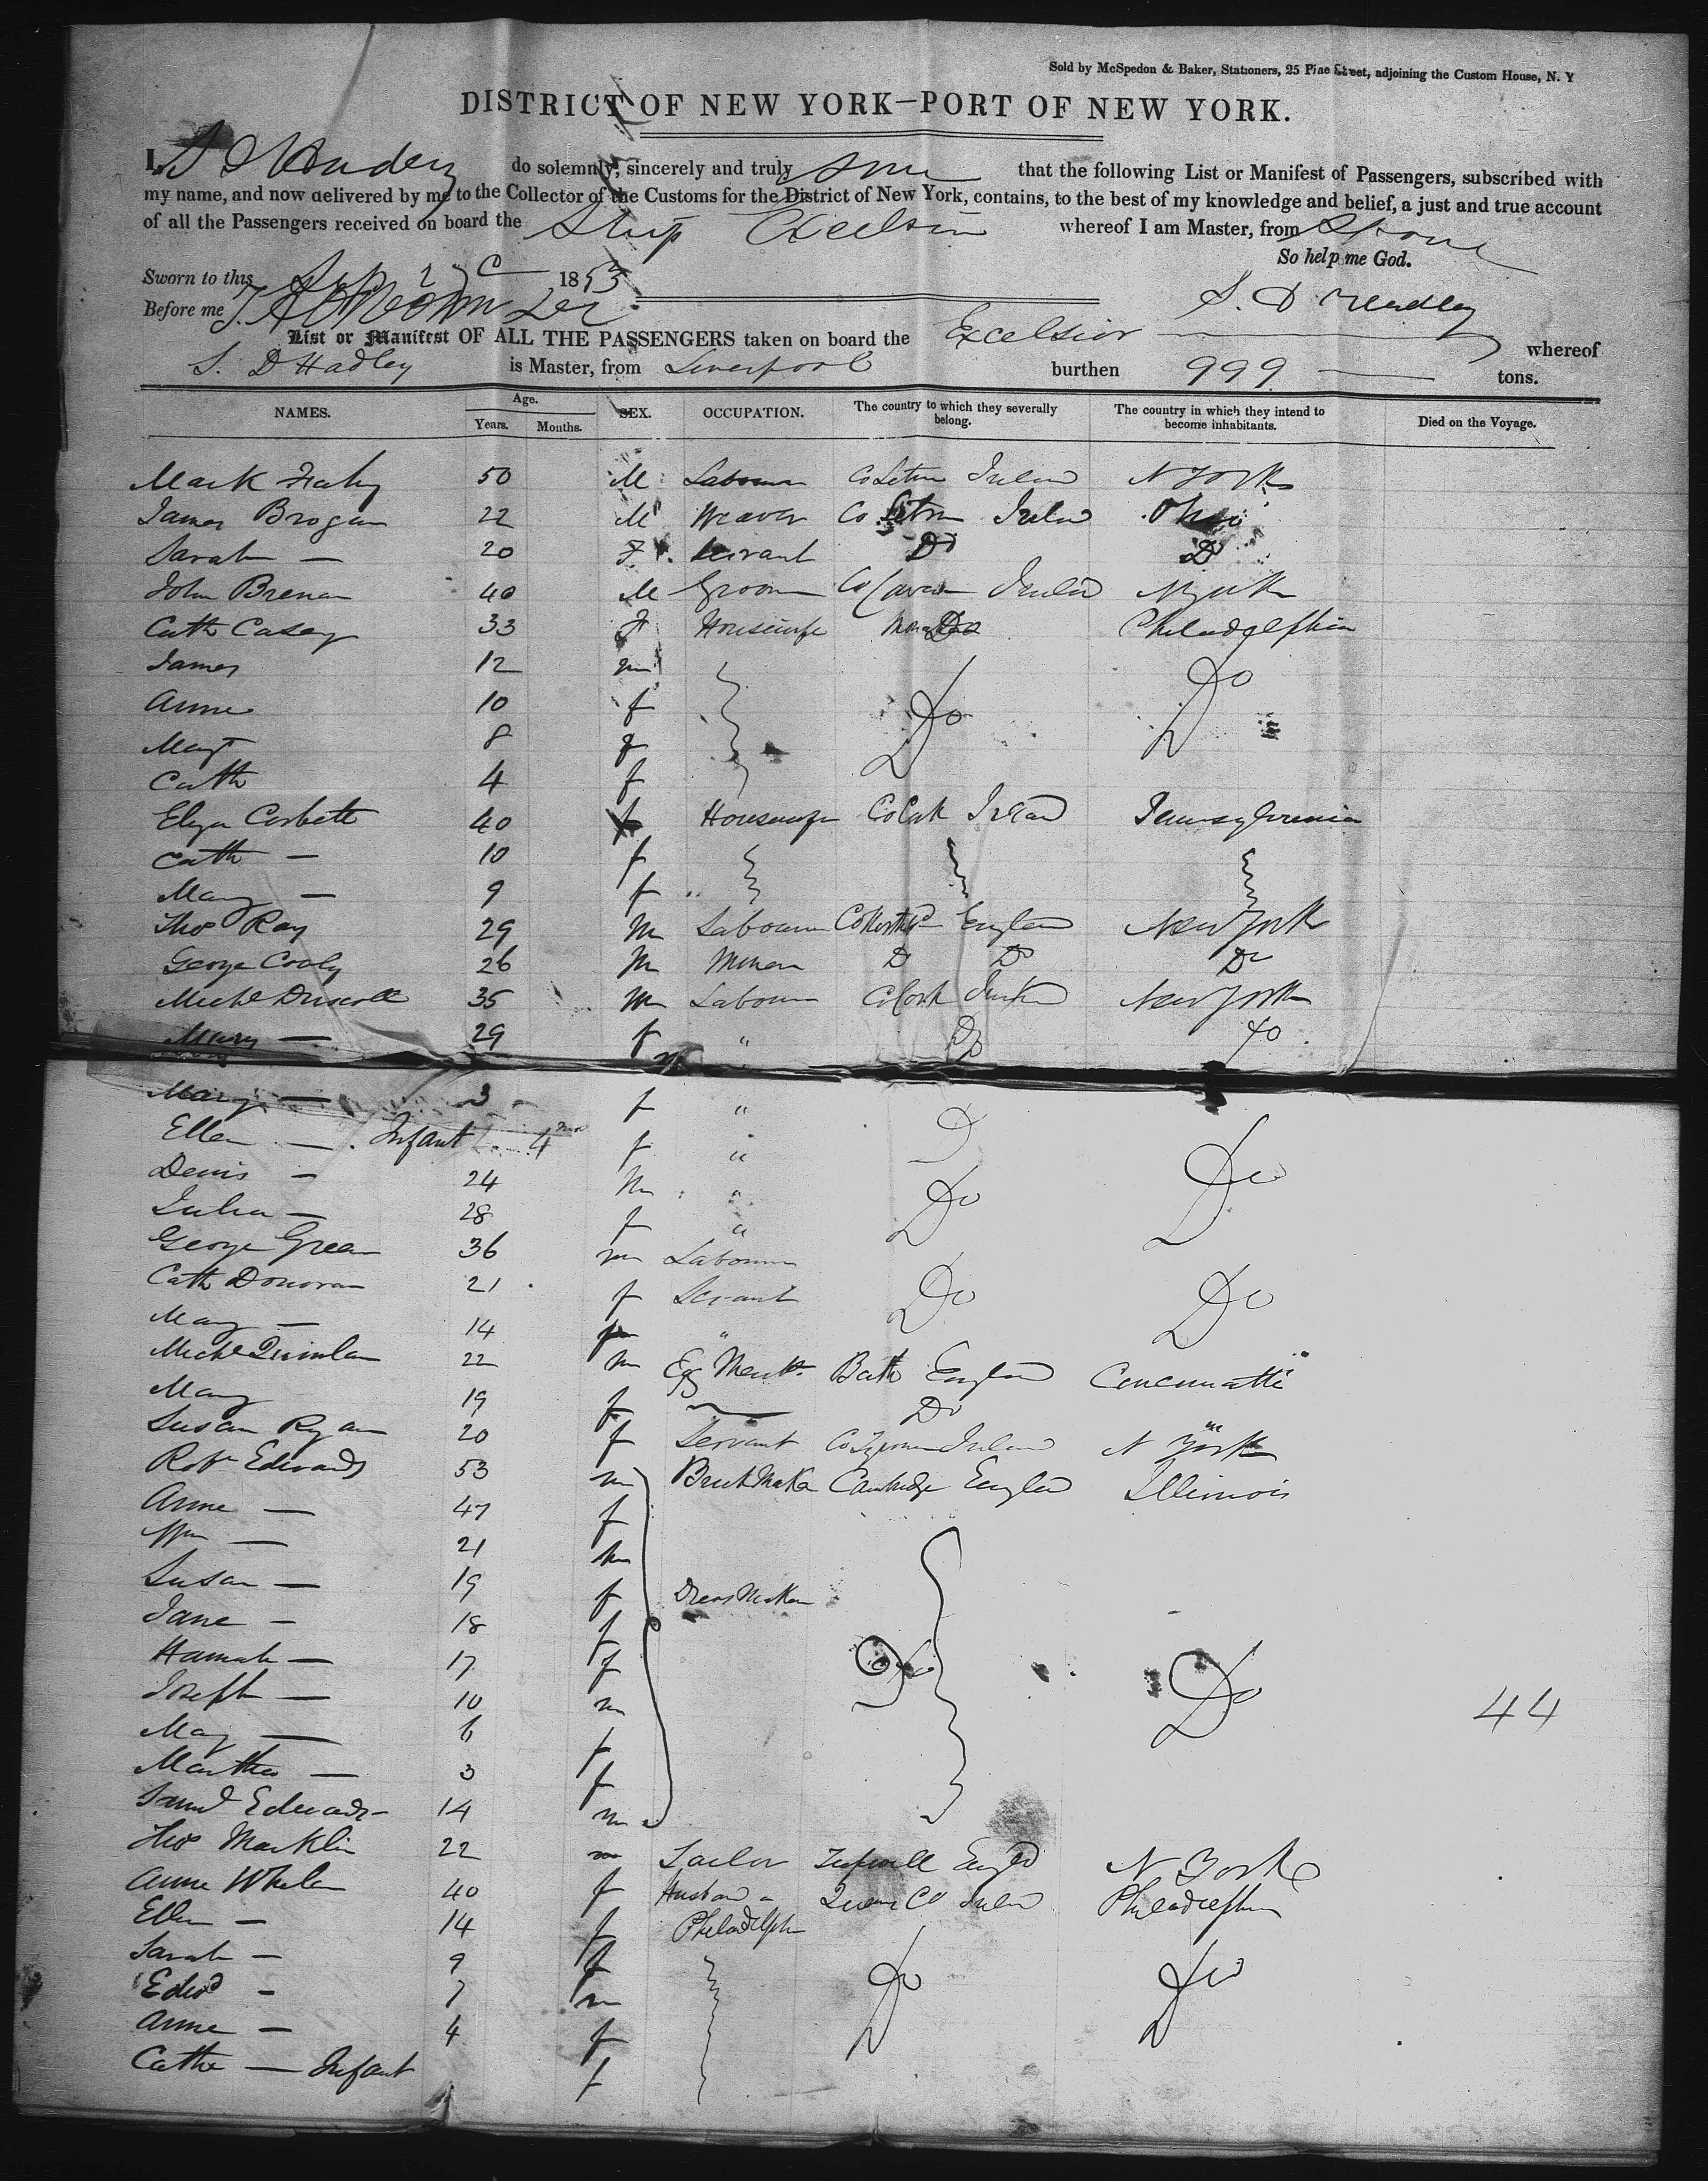 Sold by McSpedon & Baker, Stationers, 25 Pine Street, adjoining the Custom House, N. Y
DISTRICT OF NEW YORK—PORT OF NEW YORK.
I, do solemnly, sincerely and truly that the following List or Manifest of Passengers, subscribed with
my name, and now delivered by me to the Collector of the Customs for the District of New York, contains, to the best of my knowledge and belief, a just and true account
of all the Passengers received on board the Ship Excelsior whereof I am Master, from
So help me God.
Sworn to this 1853
Before me
S. D Hadley
List or Manifest OF ALL THE PASSENGERS taken on board the Excelsior whereof
S. D Hadley is Master, from Liverpool burthen 999 tons.
NAMES. Age. Years. Months. SEX. OCCUPATION. The country to which they severally belong. The country in which they intend to become inhabitants. Died on the Voyage.
Mark 50 M Labourer Co Ireland N York
James Brogan 22 M Weaver Co Ireland Ohio
Sarah — 20 F Servant Do Do
John Brenan 40 M Groom Co Cavan Ireland N York
Cath Casey 33 F Housewife Philadelphia
James 12 m
Anne 10 f Do Do
Mary 8 f
Cath 4 f
Eliza Corbett 40 f Housewife Co Cork Ireland Pennsylvania
Cath — 10 f
Mary — 9 f
Thos Ray 29 M Labourer England New York
George Cooly 26 M Miner D Do Do
Michl Driscoll 35 M Labourer Co Cork New York
Mary — 29 f " Do Do
Mary — 3 f " D
Ellen — Infant 4 mos f " Do
Denis — 24 M " Do
Julia — 28 f "
George Green 36 m Labourer
Cath Donovan 21 f Servant Do Do
Mary — 14 f "
Michl Quinlan 22 m Egg Mercht Bath England Cincinnatti
Mary 19 f — Do "
Susan Ryan 20 f Servant Co Tyrone Ireland N York
Robt Edwards 53 m Brick Maker Cambridge England Illinois
Anne — 47 f
Wm — 21 m
Susan — 19 f Dress Maker
Jane — 18 f
Hannah — 17 f Do Do
Joseph — 10 m
Mary — 6 f
Martha — 3 f
Saml Edwards 14 m
44
Thos Marklin 22 m Sailor Engld N York
Anne Whelan 40 f Husband in Queens Co Ireland Philadelphia
Ellen — 14 f Philadelphia
Sarah — 9 f Do Do
Edwd — 7 m
Anne — 4 f
Cathe — Infant f